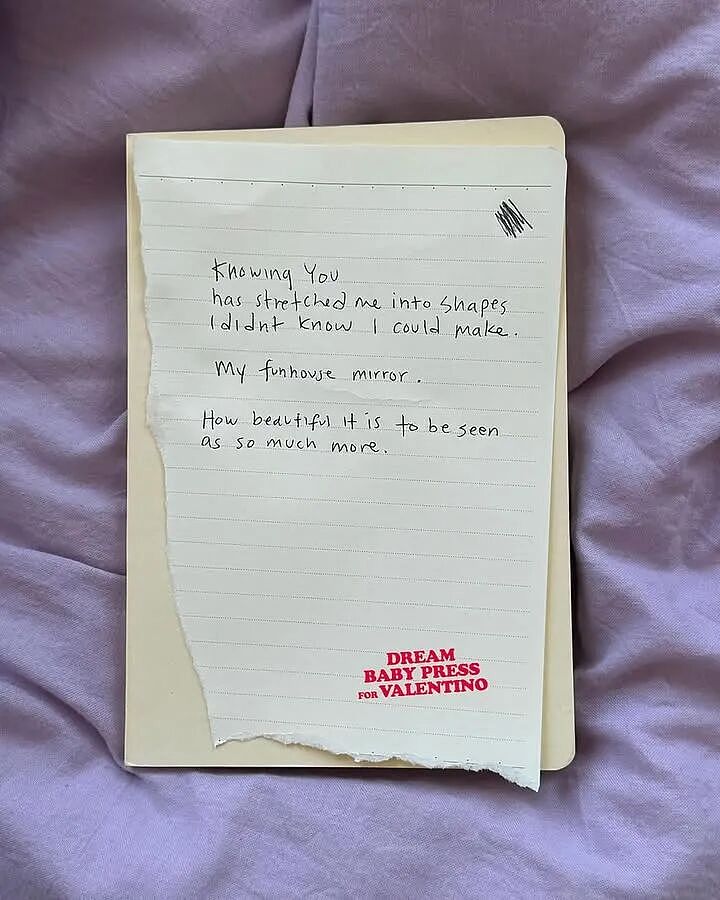 Knowing You
has stretched me into shapes
I didnt know I could make.
My funhouse mirror.
How beautiful it is to be seen
as so much more.
DREAM
BABY PRESS
FOR VALENTINO